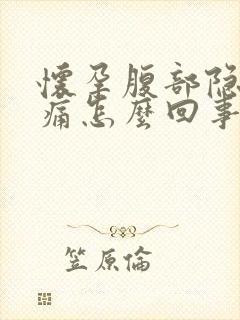 懷孕腹部隐
痛怎麼回事
笠原倫